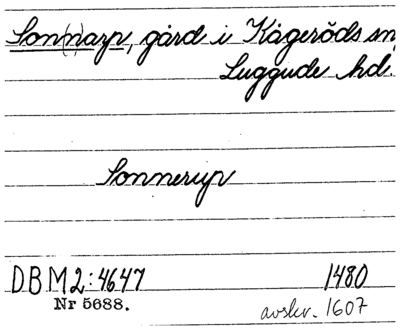 Son(n)arp, gård i Kågeröds sn
Luggude hd.
Sonnerup
DBM2:4647 1480
Nr 5688. avskr. 1607